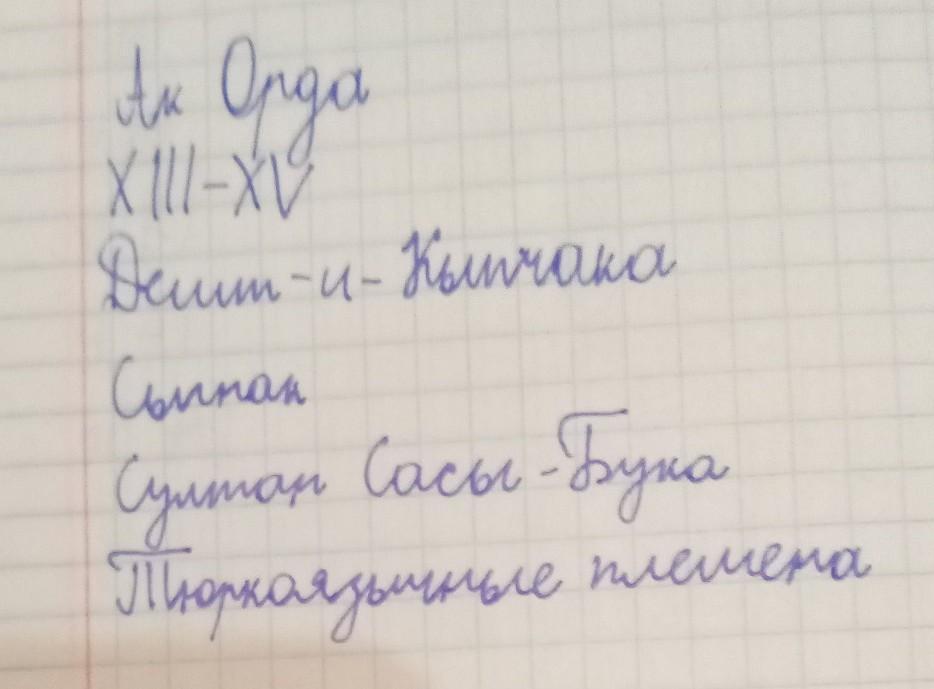 Ак Орда
XIII-XV
Дешт-и-Кыпчака
Сыгнак
Султан Сасы-Бука
Тюркоязычные племена